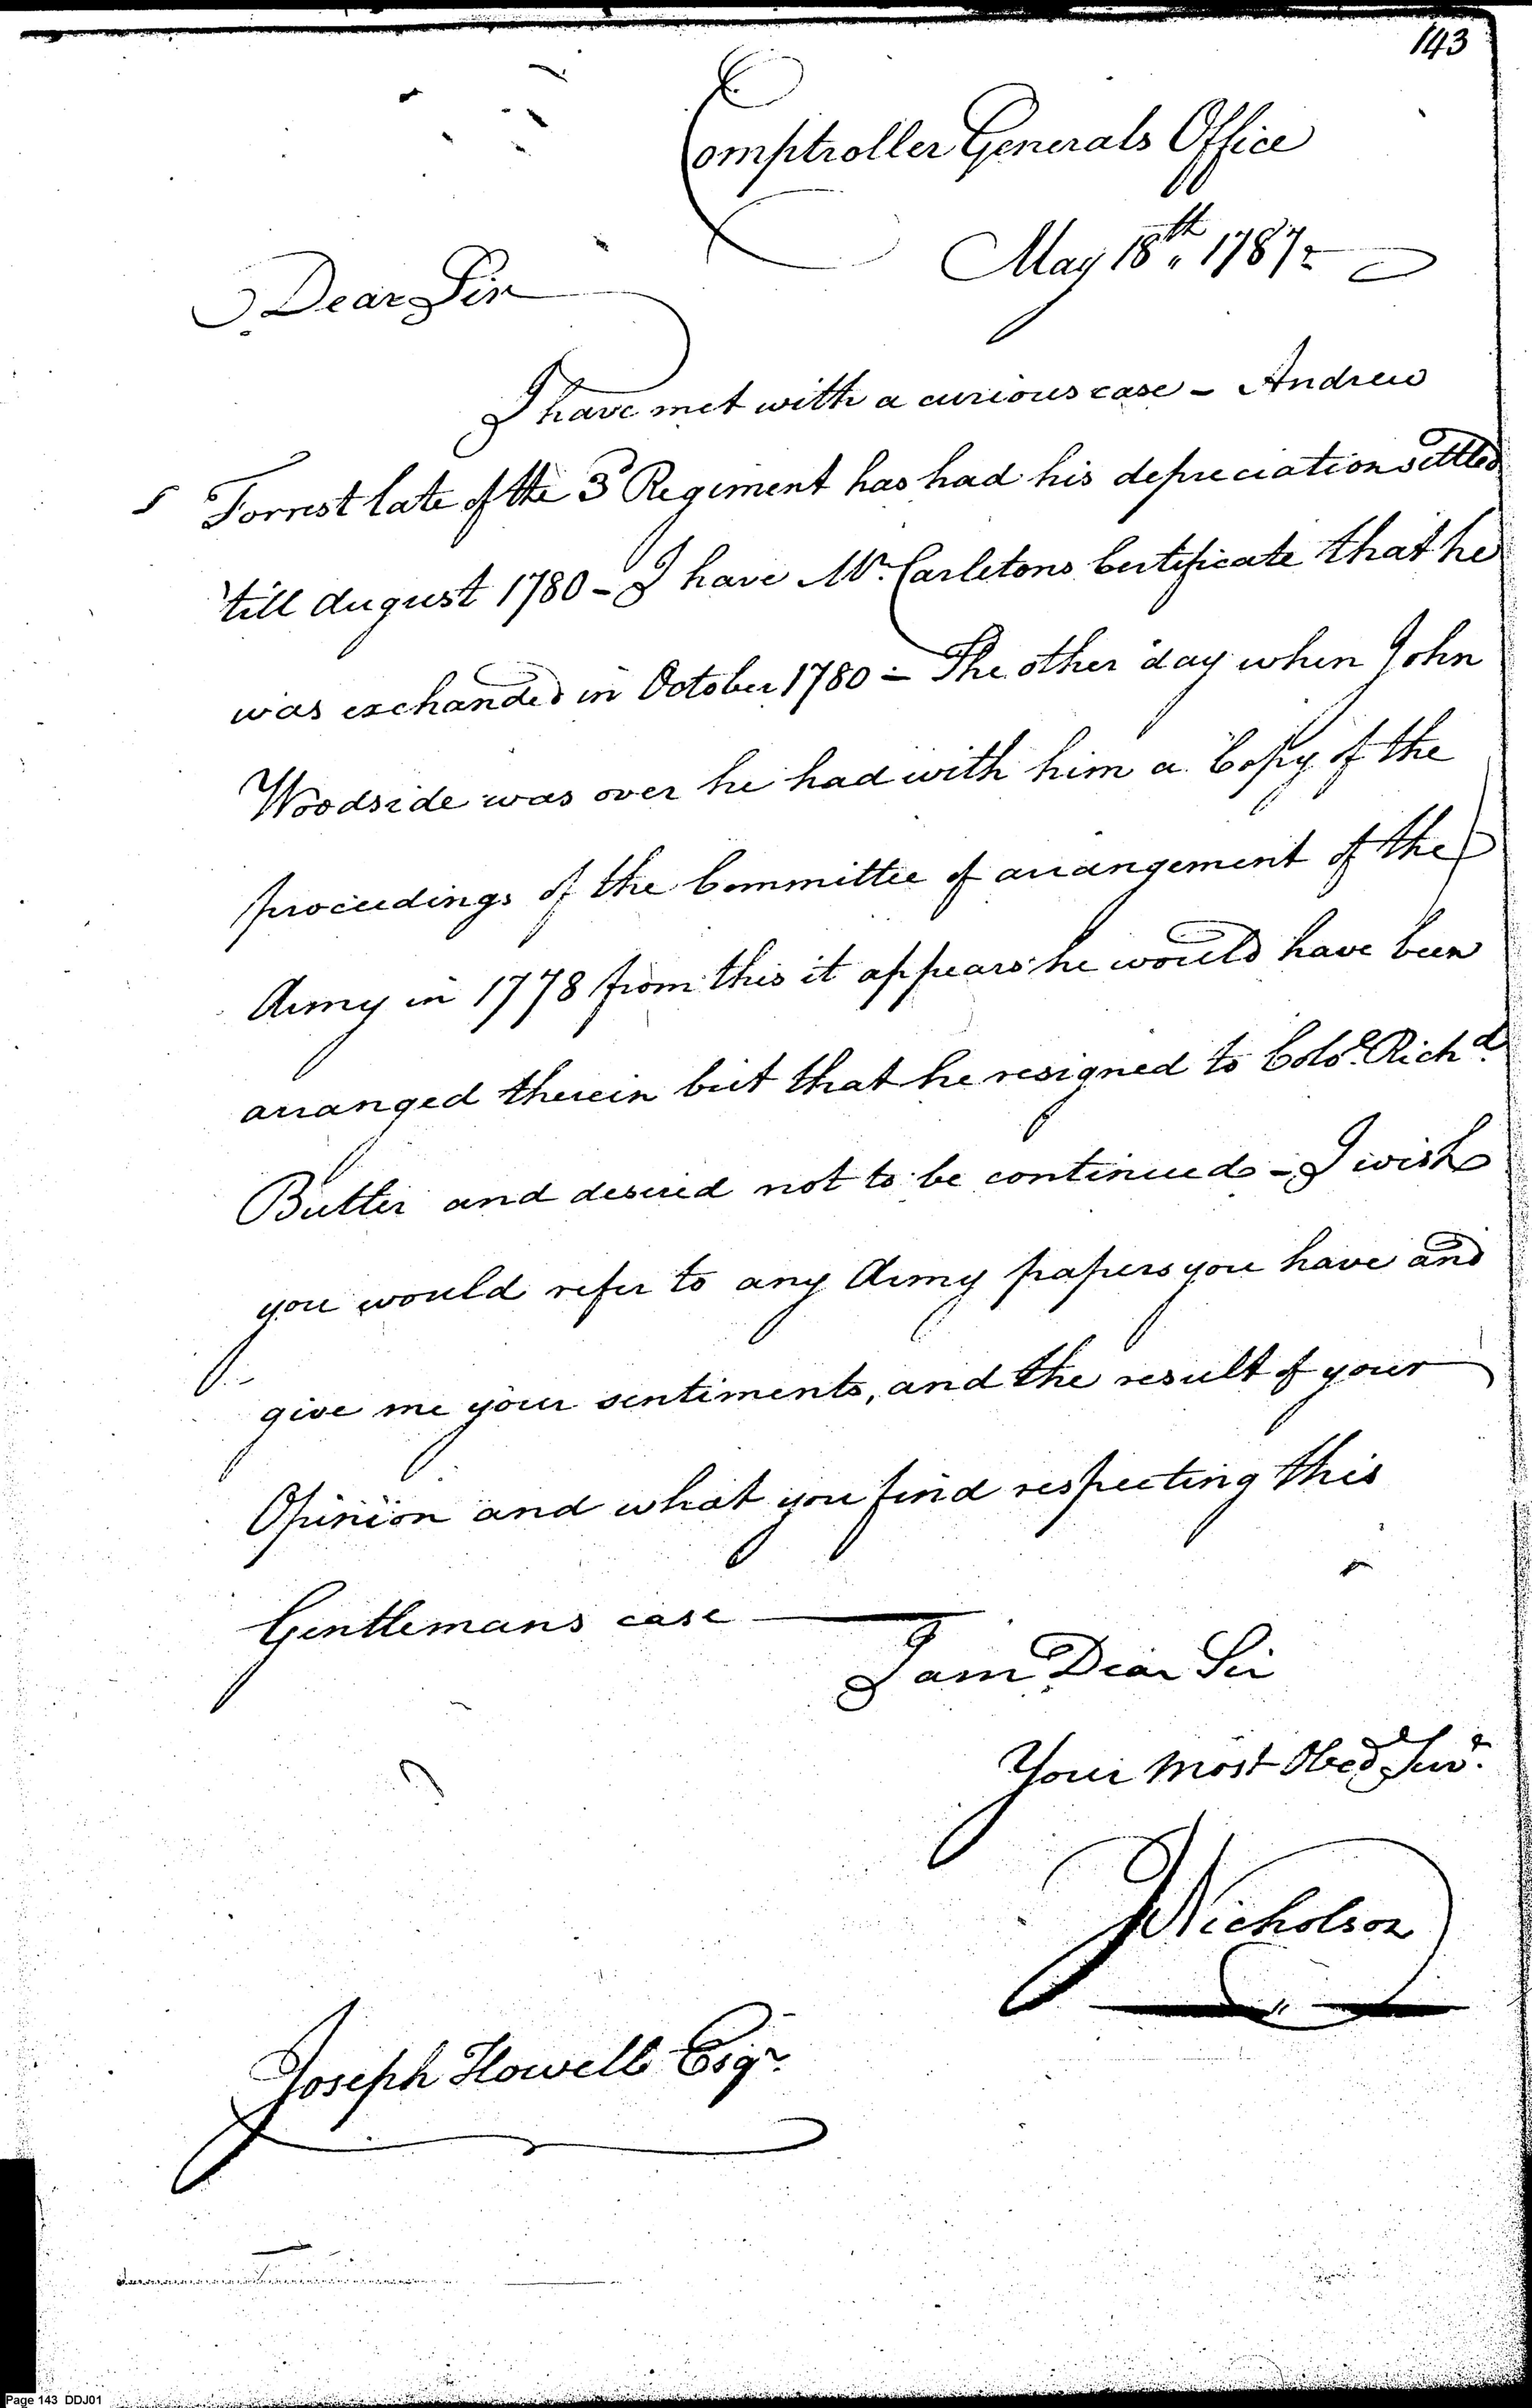 143
Comptroller Generals Office
May 18th 1787
Dear Sir
I have met with a curious case - Andrew
Forrest late of the 3d Regiment has had his depreciation settled
'till August 1780 - I have Mr. Carletons Certificate that he
was exchanded in October 1780 - The other day when John
Woodside was over he had with him a Copy of the
proceedings of the Committee of arrangement of the
Army in 1778 from this it appears he would have been
arranged therein but that he resigned to Colo. Richd.
Butler and desired not to be continued - I wish
you would refer to any Army papers you have and
give me your sentiments, and the result of your
Opinion and what you find respecting this
Gentlemans case
I am Dear Sir
Your most Obed Serv.
JNicholson
Joseph Howell Esqr.
Page 143 DDJ01